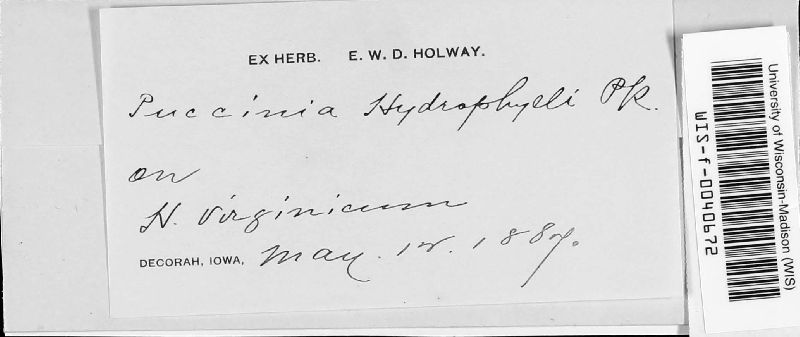 EX HERB. E. W. D. HOLWAY.
Puccinia Hydrophylli Pk.
on
H. Virginicum
DECORAH, IOWA, May. 12. 1887.
University of Wisconsin-Madison (WIS)
WIS-f-0040672